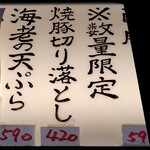 ※数量限定
焼豚切り落とし
420
海老の天ぷら
590